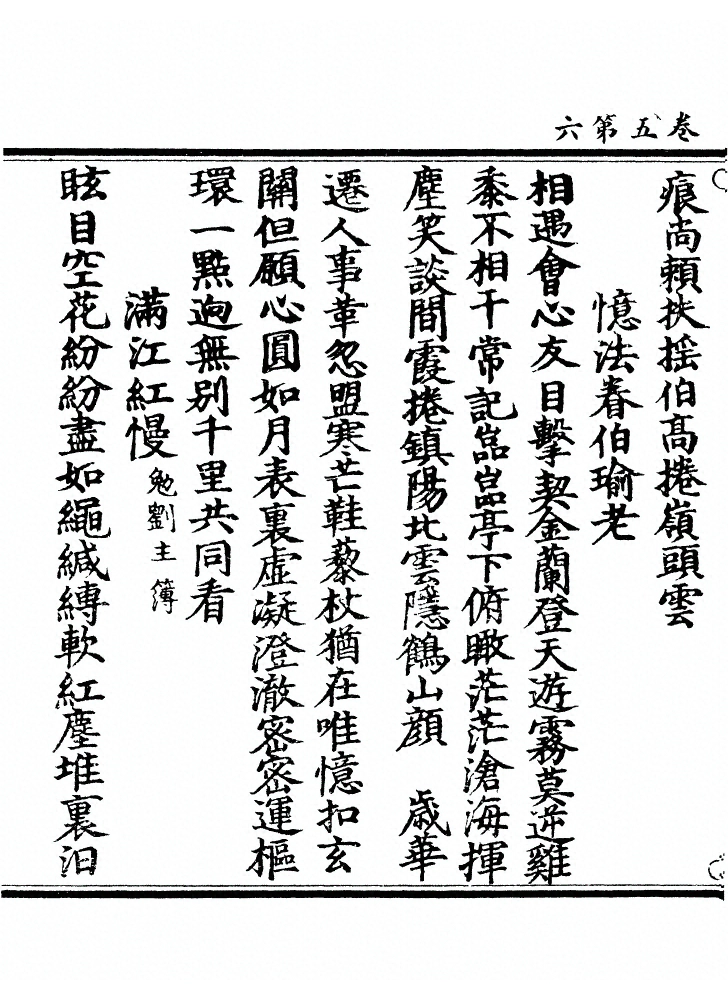 卷五第六
痕尚賴扶摇伯髙捲嶺頭雲
憶法眷伯瑜老
相遇會心友目擊契金蘭登天遊霧莫逆雞
黍不相干常記嵓嵓亭下俯瞰茫茫滄海揮
麈笑談間霞捲鎮陽北雲隱鶴山顔　歳華
遷人事革忽盟寒芒鞋藜杖猶在唯憶扣玄
關但願心圓如月表裏虚凝澄澈密密運樞
環一點逈無别千里共同看
滿江紅慢 勉劉主簿
眩目空花紛紛盡如繩緘縳軟紅塵堆裏汨